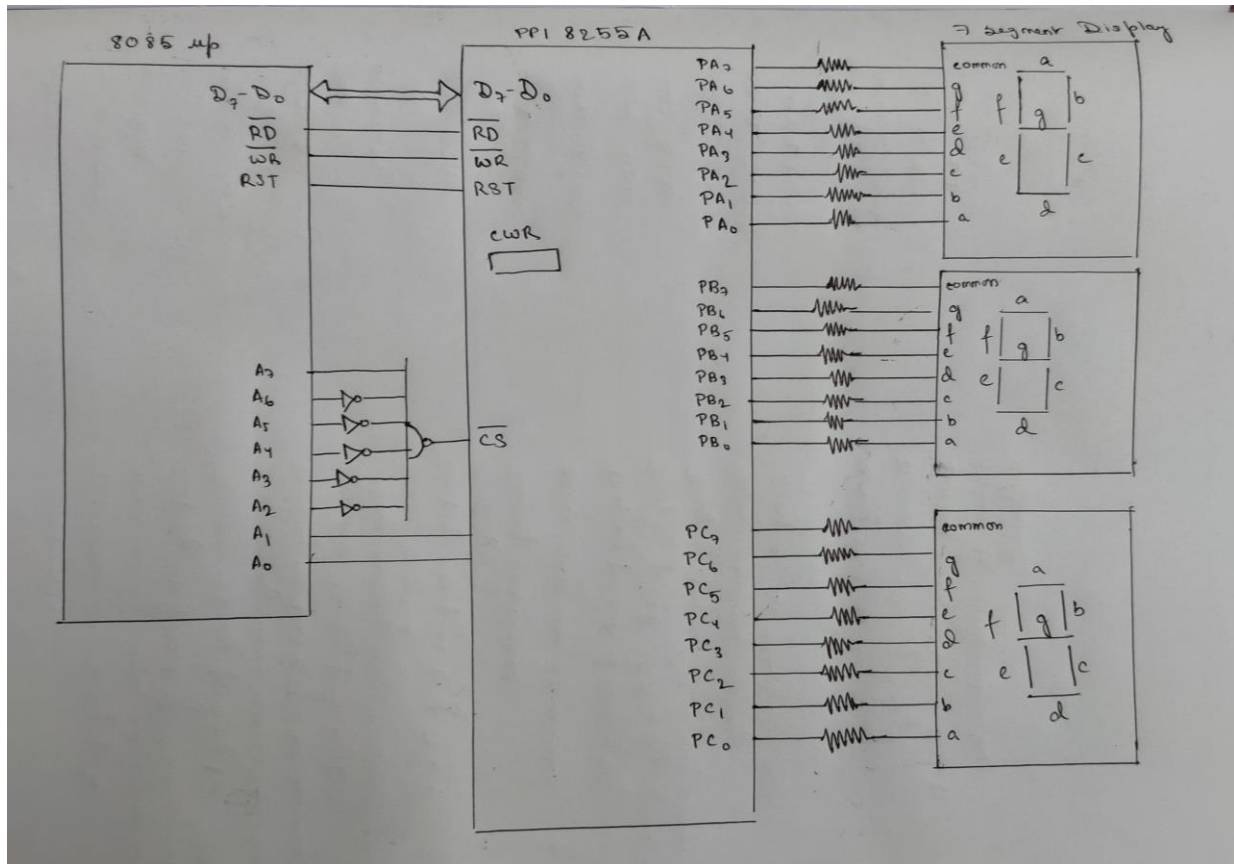 8085 μp
PPI 8255A
7 segment Display
D₇-D₀
R̅D̅
W̅R̅
RST
A₇
A₆
A₅
A₄
A₃
A₂
A₁
A₀
D₇-D₀
R̅D̅
W̅R̅
RST
CWR
C̅S̅
PA₇
PA₆
PA₅
PA₄
PA₃
PA₂
PA₁
PA₀
PB₇
PB₆
PB₅
PB₄
PB₃
PB₂
PB₁
PB₀
PC₇
PC₆
PC₅
PC₄
PC₃
PC₂
PC₁
PC₀
common
g
f
e
d
c
b
a
a
f g b
e c
d
common
g
f
e
d
c
b
a
a
f g b
e c
d
common
g
f
e
d
c
b
a
a
f g b
e c
d